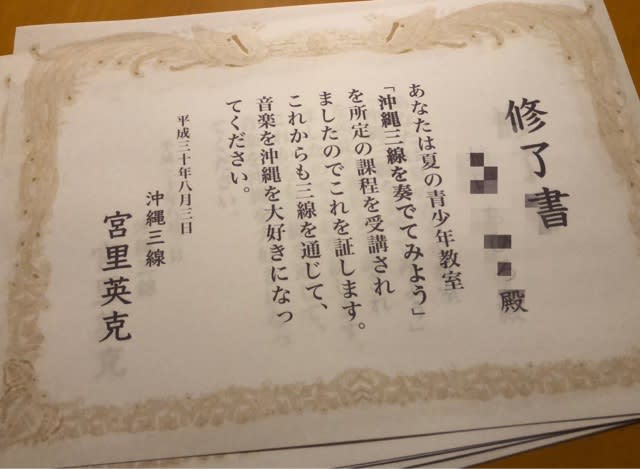 修了書
殿
あなたは夏の青少年教室
「沖縄三線を奏でてみよう」
を所定の課程を受講され
ましたのでこれを証します。
これからも三線を通じて、
音楽を沖縄を大好きになっ
てください。
平成三十年八月三日
沖縄三線
宮里英克